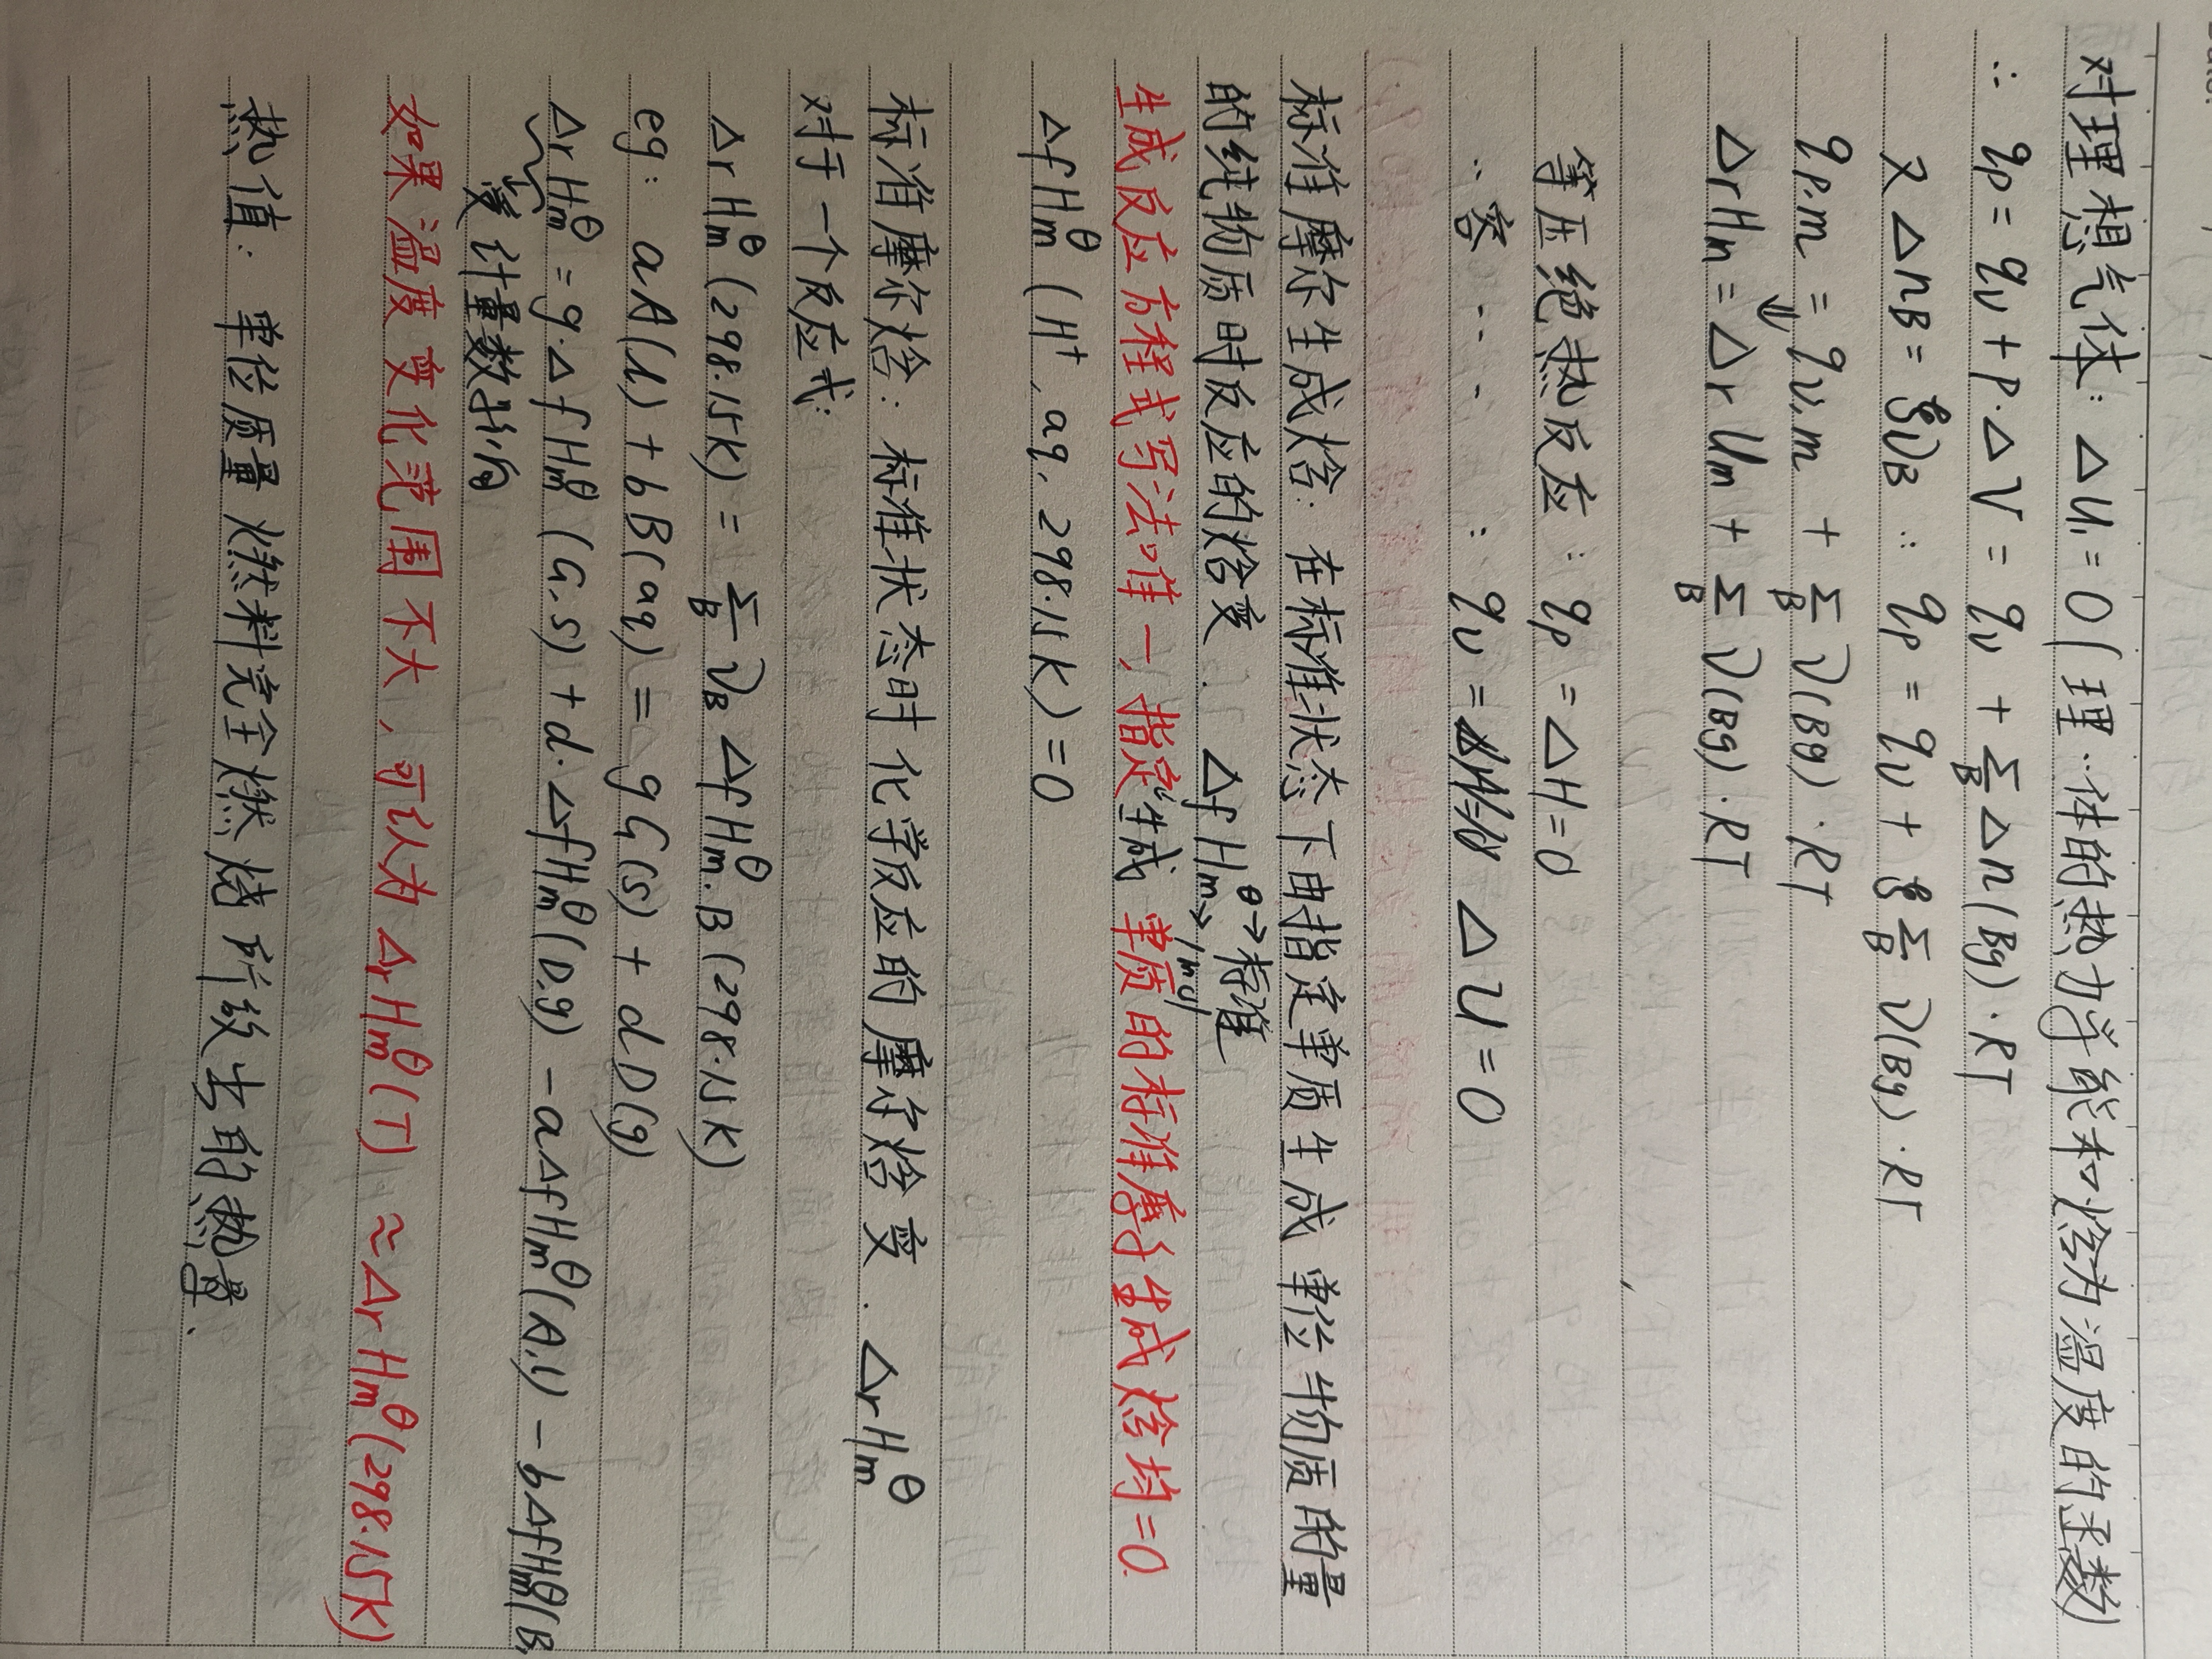 对理想气体: ΔU₁=0(理··体的热力学能和焓为温度的函数)
∴ qp = qv + p·ΔV = qv + Σ_B Δn(Bg)·RT
又 ΔnB = ξνB ∴ qp = qv + ξ Σ_B ν(Bg)·RT
qp,m = qv,m + Σ_B ν(Bg)·RT
⇓
ΔrHm = ΔrUm + Σ_B ν(Bg)·RT
等压绝热反应: qp = ΔH = 0
··容 ··· : qv = ΔU = 0
标准摩尔生成焓: 在标准状态下由指定单质生成单位物质的量
的纯物质时反应的焓变. ΔfHm^θ → 标准
→ 1mol
生成反应方程式写法唯一, 指定生成单质的标准摩尔生成焓均=0.
ΔfHm^θ (H⁺, aq, 298.15K) = 0
标准摩尔焓: 标准状态时化学反应的摩尔焓变. ΔrHm^θ
对于一个反应式:
ΔrHm^θ (298.15K) = Σ_B νB ΔfHm^θ.B (298.15K)
eg: aA(l) + bB(aq) = gG(s) + dD(g)
ΔrHm^θ = g·ΔfHm^θ (G,s) + d·ΔfHm^θ (D,g) - aΔfHm^θ (A,l) - bΔfHm^θ (B,
↓受计量数影向
如果温度变化范围不大, 可认为 ΔrHm^θ (T) ≈ ΔrHm^θ (298.15K)
热值: 单位质量燃料完全燃烧所放出的热量.